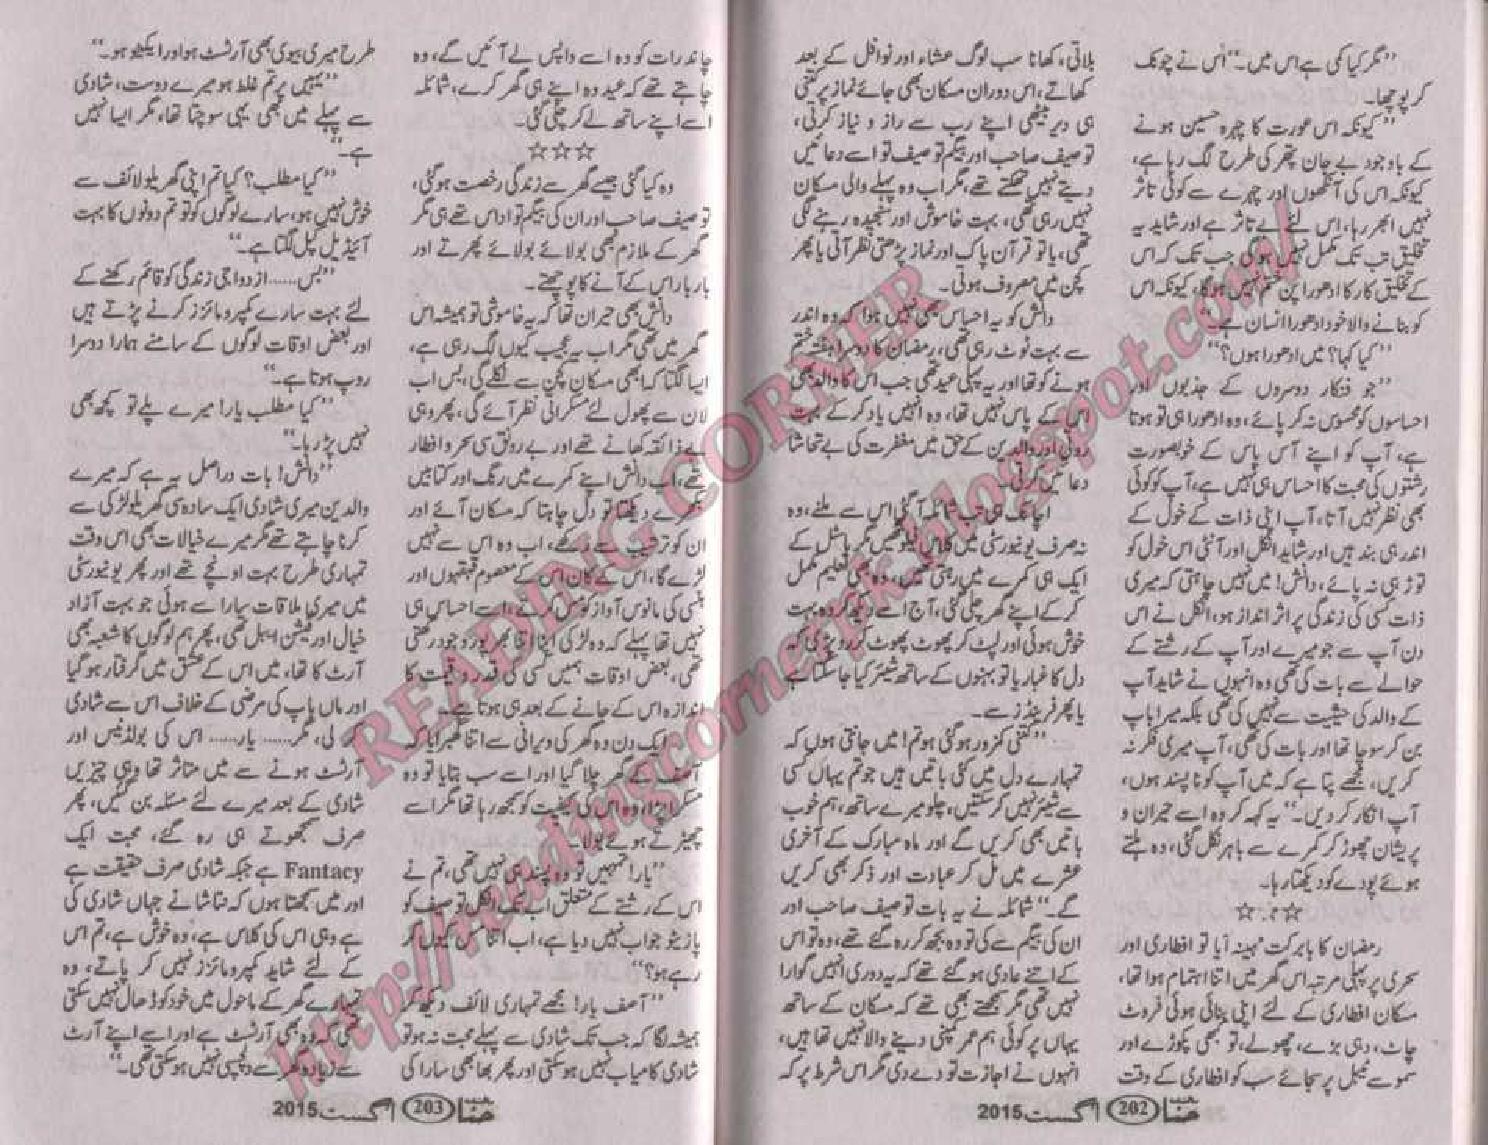 ”مگر کیا کمی ہے اس میں۔“ اس نے چونک
کر پوچھا۔
”کیونکہ اس عورت کا چہرہ حسین ہونے
کے باوجود بے جان پتھر کی طرح لگ رہا ہے،
کیونکہ اس کی آنکھوں اور چہرے سے کوئی تاثر
نہیں ابھر رہا، اس لئے بے تاثر ہے اور شاید یہ
تخلیق تب تک مکمل نہیں ہوگی جب تک کہ اس
کے تخلیق کار کا ادھورا پن ختم نہیں ہوگا، کیونکہ اس
کو بنانے والا خود ادھورا انسان ہے۔“
”کیا کہا؟ میں ادھورا ہوں؟“
”جو فنکار دوسروں کے جذبوں اور
احساسوں کو محسوس نہ کر پائے، وہ ادھورا ہی تو ہوتا
ہے، آپ کو اپنے آس پاس کے خوبصورت
رشتوں کی محبت کا احساس ہی نہیں ہے، آپ کو کوئی
بھی نظر نہیں آتا، آپ اپنی ذات کے خول کے
اندر ہی بند ہیں اور شاید انکل اور آنٹی اس خول کو
توڑ ہی نہ پائے، دانش! میں نہیں چاہتی کہ میری
ذات کسی کی زندگی پر اثر انداز ہو، انکل نے اس
دن آپ سے جو میرے اور آپ کے رشتے کے
حوالے سے بات کی تھی وہ انہوں نے شاید آپ
کے والد کی حیثیت سے نہیں کی تھی بلکہ میرا باپ
بن کر سوچا تھا اور بات کی تھی، آپ میری فکر نہ
کریں، مجھے پتا ہے کہ میں آپ کو ناپسند ہوں،
آپ انکار کر دیں۔“ یہ کہہ کر وہ اسے حیران و
پریشان چھوڑ کر کمرے سے باہر نکل گئی، وہ ہلتے
ہوئے پردے کو دیکھتا رہا۔
☆☆☆
رمضان کا بابرکت مہینہ آیا تو افطاری اور
سحری پر پہلی مرتبہ اس گھر میں اتنا اہتمام ہوا تھا،
مسکان افطاری کے لئے اپنی بنائی ہوئی فروٹ
چاٹ، دہی بڑے، چھولے، تو بھی پکوڑے اور
سموسے ٹیبل پر سجائے سب کو افطاری کے وقت
بلاتی، کھانا سب لوگ عشاء اور نوافل کے بعد
کھاتے، اس دوران مسکان بھی جائے نماز پر کتنی
ہی دیر بیٹھی اپنے رب سے راز و نیاز کرتی،
توصیف صاحب اور بیگم توصیف تو اسے دعائیں
دیتے نہیں تھکتے تھے، مگر اب وہ پہلے والی مسکان
نہیں رہی تھی، بہت خاموش اور سنجیدہ رہنے لگی
تھی، یا تو قرآن پاک اور نماز پڑھتی نظر آتی یا پھر
کچن میں مصروف ہوتی۔
دانش کو یہ احساس بھی نہیں ہوا کہ وہ اندر
سے بہت ٹوٹ رہی تھی، رمضان کا دوسرا ہفتہ ختم
ہونے کو تھا اور یہ پہلی عید تھی جب اس کا والد بھی
اس کے پاس نہیں تھا، وہ انہیں یاد کر کے بہت
روتی اور والدین کے حق میں مغفرت کی بے تحاشا
دعائیں کرتی۔
اچانک ہی شمائلہ آ گئی اس سے ملنے، وہ
نہ صرف یونیورسٹی میں کلاس فیلو تھیں مگر ہاسٹل کے
ایک ہی کمرے میں رہتی تھیں، وہ بھی تعلیم مکمل
کر کے اپنے گھر چلی گئی، آج اسے دیکھ کر وہ بہت
خوش ہوئی اور لپٹ کر پھوٹ پھوٹ کر رو پڑی کہ
دل کا غبار یا تو بہنوں کے ساتھ شیئر کیا جا سکتا ہے
یا پھر فرینڈز سے۔
”کتنی کمزور ہو گئی ہو تم! میں جانتی ہوں کہ
تمہارے دل میں کئی باتیں ہیں جو تم یہاں کسی
سے شیئر نہیں کر سکتیں، چلو میرے ساتھ، ہم خوب
باتیں بھی کریں گے اور ماہ مبارک کے آخری
عشرے میں مل کر عبادت اور ذکر بھی کریں
گے۔“ شمائلہ نے یہ بات توصیف صاحب اور
ان کی بیگم سے کی تو وہ بجھ کر رہ گئے تھے، وہ تو اس
کے اتنے عادی ہو گئے تھے کہ یہ دوری انہیں گوارا
نہیں تھی مگر سمجھتے بھی تھے کہ مسکان کے ساتھ
یہاں پر کوئی ہم عمر کمپنی دینے والا نہیں تھا ہیں،
انہوں نے اجازت تو دے دی مگر اس شرط پر کہ
حنا 202 اگست 2015
چاند رات کو وہ اسے واپس لے آئیں گے، وہ
چاہتے تھے کہ عید وہ اپنے ہی گھر کرے، شمائلہ
اسے اپنے ساتھ لے کر چلی گئی۔
☆☆☆
وہ کیا گئی جیسے گھر سے زندگی رخصت ہو گئی،
توصیف صاحب اور ان کی بیگم تو اداس تھے ہی مگر
گھر کے ملازم بھی بولائے بولائے پھرتے اور
بار بار اس کے آنے کا پوچھتے۔
دانش بھی حیران تھا کہ یہ خاموشی تو ہمیشہ اس
گھر میں تھی مگر اب یہ عجیب کیوں لگ رہی ہے،
ایسا لگتا کہ ابھی مسکان کچن سے نکلے گی، بس اب
لان سے پھول لئے مسکراتی نظر آئے گی، پھر وہی
بے ذائقہ کھانے تھے اور بے رونق سی سحر و افطار
تھے، اب دانش اپنے کمرے میں رنگ اور کتابیں
بکھرے دیکھتا تو دل چاہتا کہ مسکان آئے اور
ان کو ترتیب سے رکھے، اب وہ اس سے نہیں
لڑے گا، اس کے کان اس کے معصوم قہقہوں اور
ہنسی کی مانوس آواز کو ترس گئے، اسے احساس ہی
نہیں تھا پہلے کہ وہ لڑکی اپنا اتنا بھرپور وجود رکھتی
تھی، بعض اوقات ہمیں کسی کی قدر و قیمت کا
اندازہ اس کے جانے کے بعد ہی ہوتا ہے۔
ایک دن وہ گھر کی ویرانی سے اتنا گھبرایا کہ
آصف کے گھر چلا گیا اور اسے سب بتایا تو وہ
مسکرا دیا، وہ اس کی کیفیت کو سمجھ رہا تھا مگر اسے
چھیڑتے ہوئے بولا۔
”یار! تمہیں تو وہ پسند ہی نہیں تھی، تم نے
اس کے رشتے کے متعلق اب تک انکل توصیف کو
پازیٹو جواب نہیں دیا ہے، اب اتنا مس کیوں کر
رہے ہو؟“
”آصف یار! مجھے تمہاری لائف دیکھ کر
ہمیشہ لگا کہ جب تک شادی سے پہلے محبت نہ ہو تو
شادی کامیاب نہیں ہو سکتی اور پھر بھابھی سارا کی
طرح میری بیوی بھی آرٹسٹ ہو اور ایکٹو ہو۔“
”یہیں پر تم غلط ہو میرے دوست، شادی
سے پہلے میں بھی یہی سوچتا تھا، مگر ایسا نہیں
ہے۔“
”کیا مطلب؟ کیا تم اپنی گھریلو لائف سے
خوش نہیں ہو، سارے لوگوں کو تو تم دونوں کا بہت
آئیڈیل کپل لگتا ہے۔“
”بس...... ازدواجی زندگی کو قائم رکھنے کے
لئے بہت سارے کمپرومائزز کرنے پڑتے ہیں
اور بعض اوقات لوگوں کے سامنے ہمارا دوسرا
روپ ہوتا ہے۔“
”کیا مطلب یار! میرے پلے تو کچھ بھی
نہیں پڑ رہا۔“
”دانش! بات دراصل یہ ہے کہ میرے
والدین میری شادی ایک سادہ سی گھریلو لڑکی سے
کرنا چاہتے تھے مگر میرے خیالات بھی اس وقت
تمہاری طرح بہت اونچے تھے اور پھر یونیورسٹی
میں میری ملاقات سارا سے ہوئی جو بہت آزاد
خیال اور فیشن ایبل تھی، پھر ہم لوگوں کا شعبہ بھی
آرٹ کا تھا، میں اس کے عشق میں گرفتار ہو گیا
اور ماں باپ کی مرضی کے خلاف اس سے شادی
کر لی، مگر...... یار...... اس کی بولڈنیس اور
آرٹسٹ ہونے سے میں متاثر تھا وہی چیزیں
شادی کے بعد میرے لئے مسئلہ بن گئیں، پھر
صرف سمجھوتے ہی رہ گئے، محبت ایک
Fantacy ہے جبکہ شادی صرف حقیقت ہے
اور میں سمجھتا ہوں کہ نتاشا نے جہاں شادی کی
ہے وہی اس کی کلاس ہے، وہ خوش ہے، تم اس
کے لئے شاید کمپرومائزز نہیں کر پاتے، وہ
تمہارے گھر کے ماحول میں خود کو ڈھال نہیں سکتی
تھی کہ وہ بھی آرٹسٹ ہے اور اسے اپنے آرٹ
سے زیادہ گھر سے دلچسپی نہیں ہو سکتی تھی۔“
حنا 203 اگست 2015
READING CORNER
http://readingcornerpk.blogspot.com/